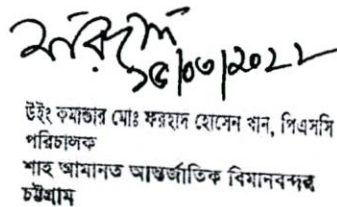 ১৫/০৩/২০২২
উইং কমান্ডার মোঃ ফরহাদ হোসেন খান, পিএসসি
পরিচালক
শাহ আমানত আন্তর্জাতিক বিমানবন্দর
চট্টগ্রাম